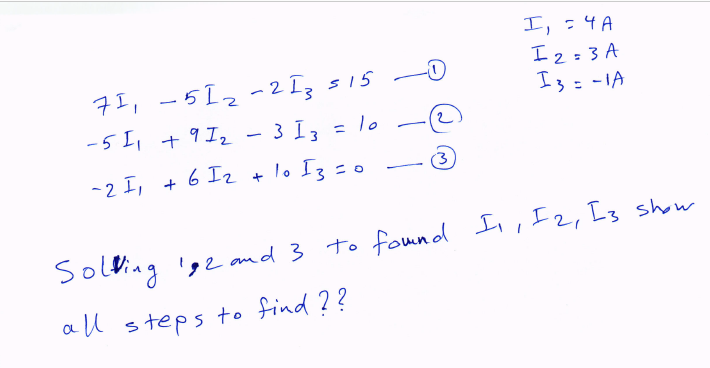 I1 = 4A
I2 = 3A
I3 = -1A
7I1 - 5I2 - 2I3 = 15 — ①
-5I1 + 9I2 - 3I3 = 10 — ②
-2I1 + 6I2 + 10I3 = 0 — ③
Solving 1,2 and 3 to found I1, I2, I3 show
all steps to find??